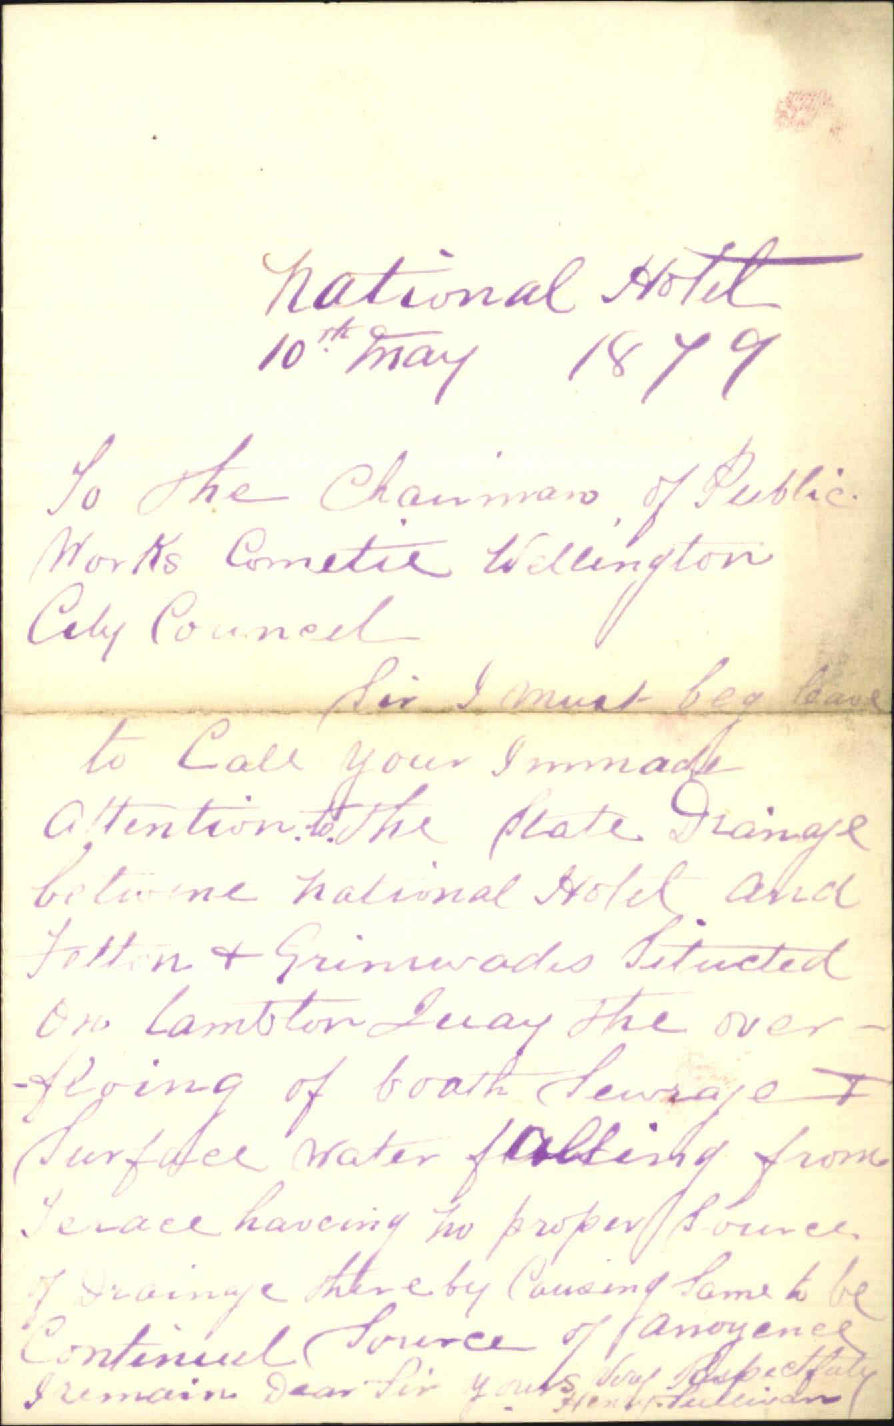 National Hotel
10th May 1879
To the Chairman of Public
Works Cometie Wellington
City Councel
Sir I must beg leave
to Call your Immade
Attention to the State Drainage
betwene National Hotel and
Felton & Grimwades Situcted
On Lambton Quay the over-
-floing of boath Sewrage &
Surface Water falling from
Terace haveing no proper Source
of Drainage thereby Causing Same to be
Continuel Source of anoyence
I remain Dear Sir yours Very Respectfuly
Henry Sullivan